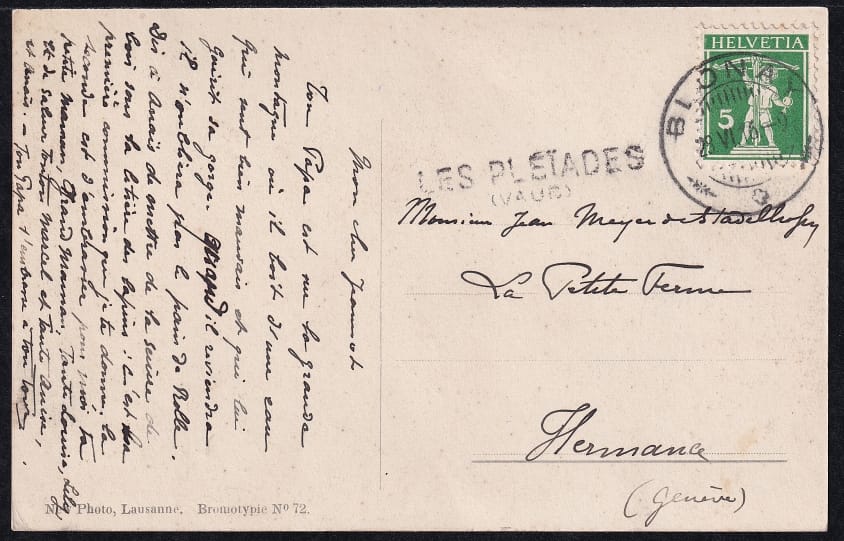 Mon cher Jeannot
Ton Papa est sur la grande
montagne où il boit d'une eau
qui sent bien mauvais et qui lui
guérit sa gorge. Quand il reviendra
il n'oubliera pas le pain de Rolle.
Dis à Anaïs de mettre de la sciure de
bois sous la litière des lapins : c'est la
première commission que je te donne. La
seconde est d'embrasser pour moi ta
petite Maman, Grand Maman, Tante Louise, Lily,
et de saluer Tonton Marcel et Tante
et Anaïs. — Ton Papa t'embrasse à ton tour.
HELVETIA
5
BLONAY
28 VI
LES PLEÏADES
(VAUD)
Monsieur Jean Meyer de Stadelhofen
La Petite Ferme
Hermance
(Genève)
Photo, Lausanne. Bromotypie Nº 72.